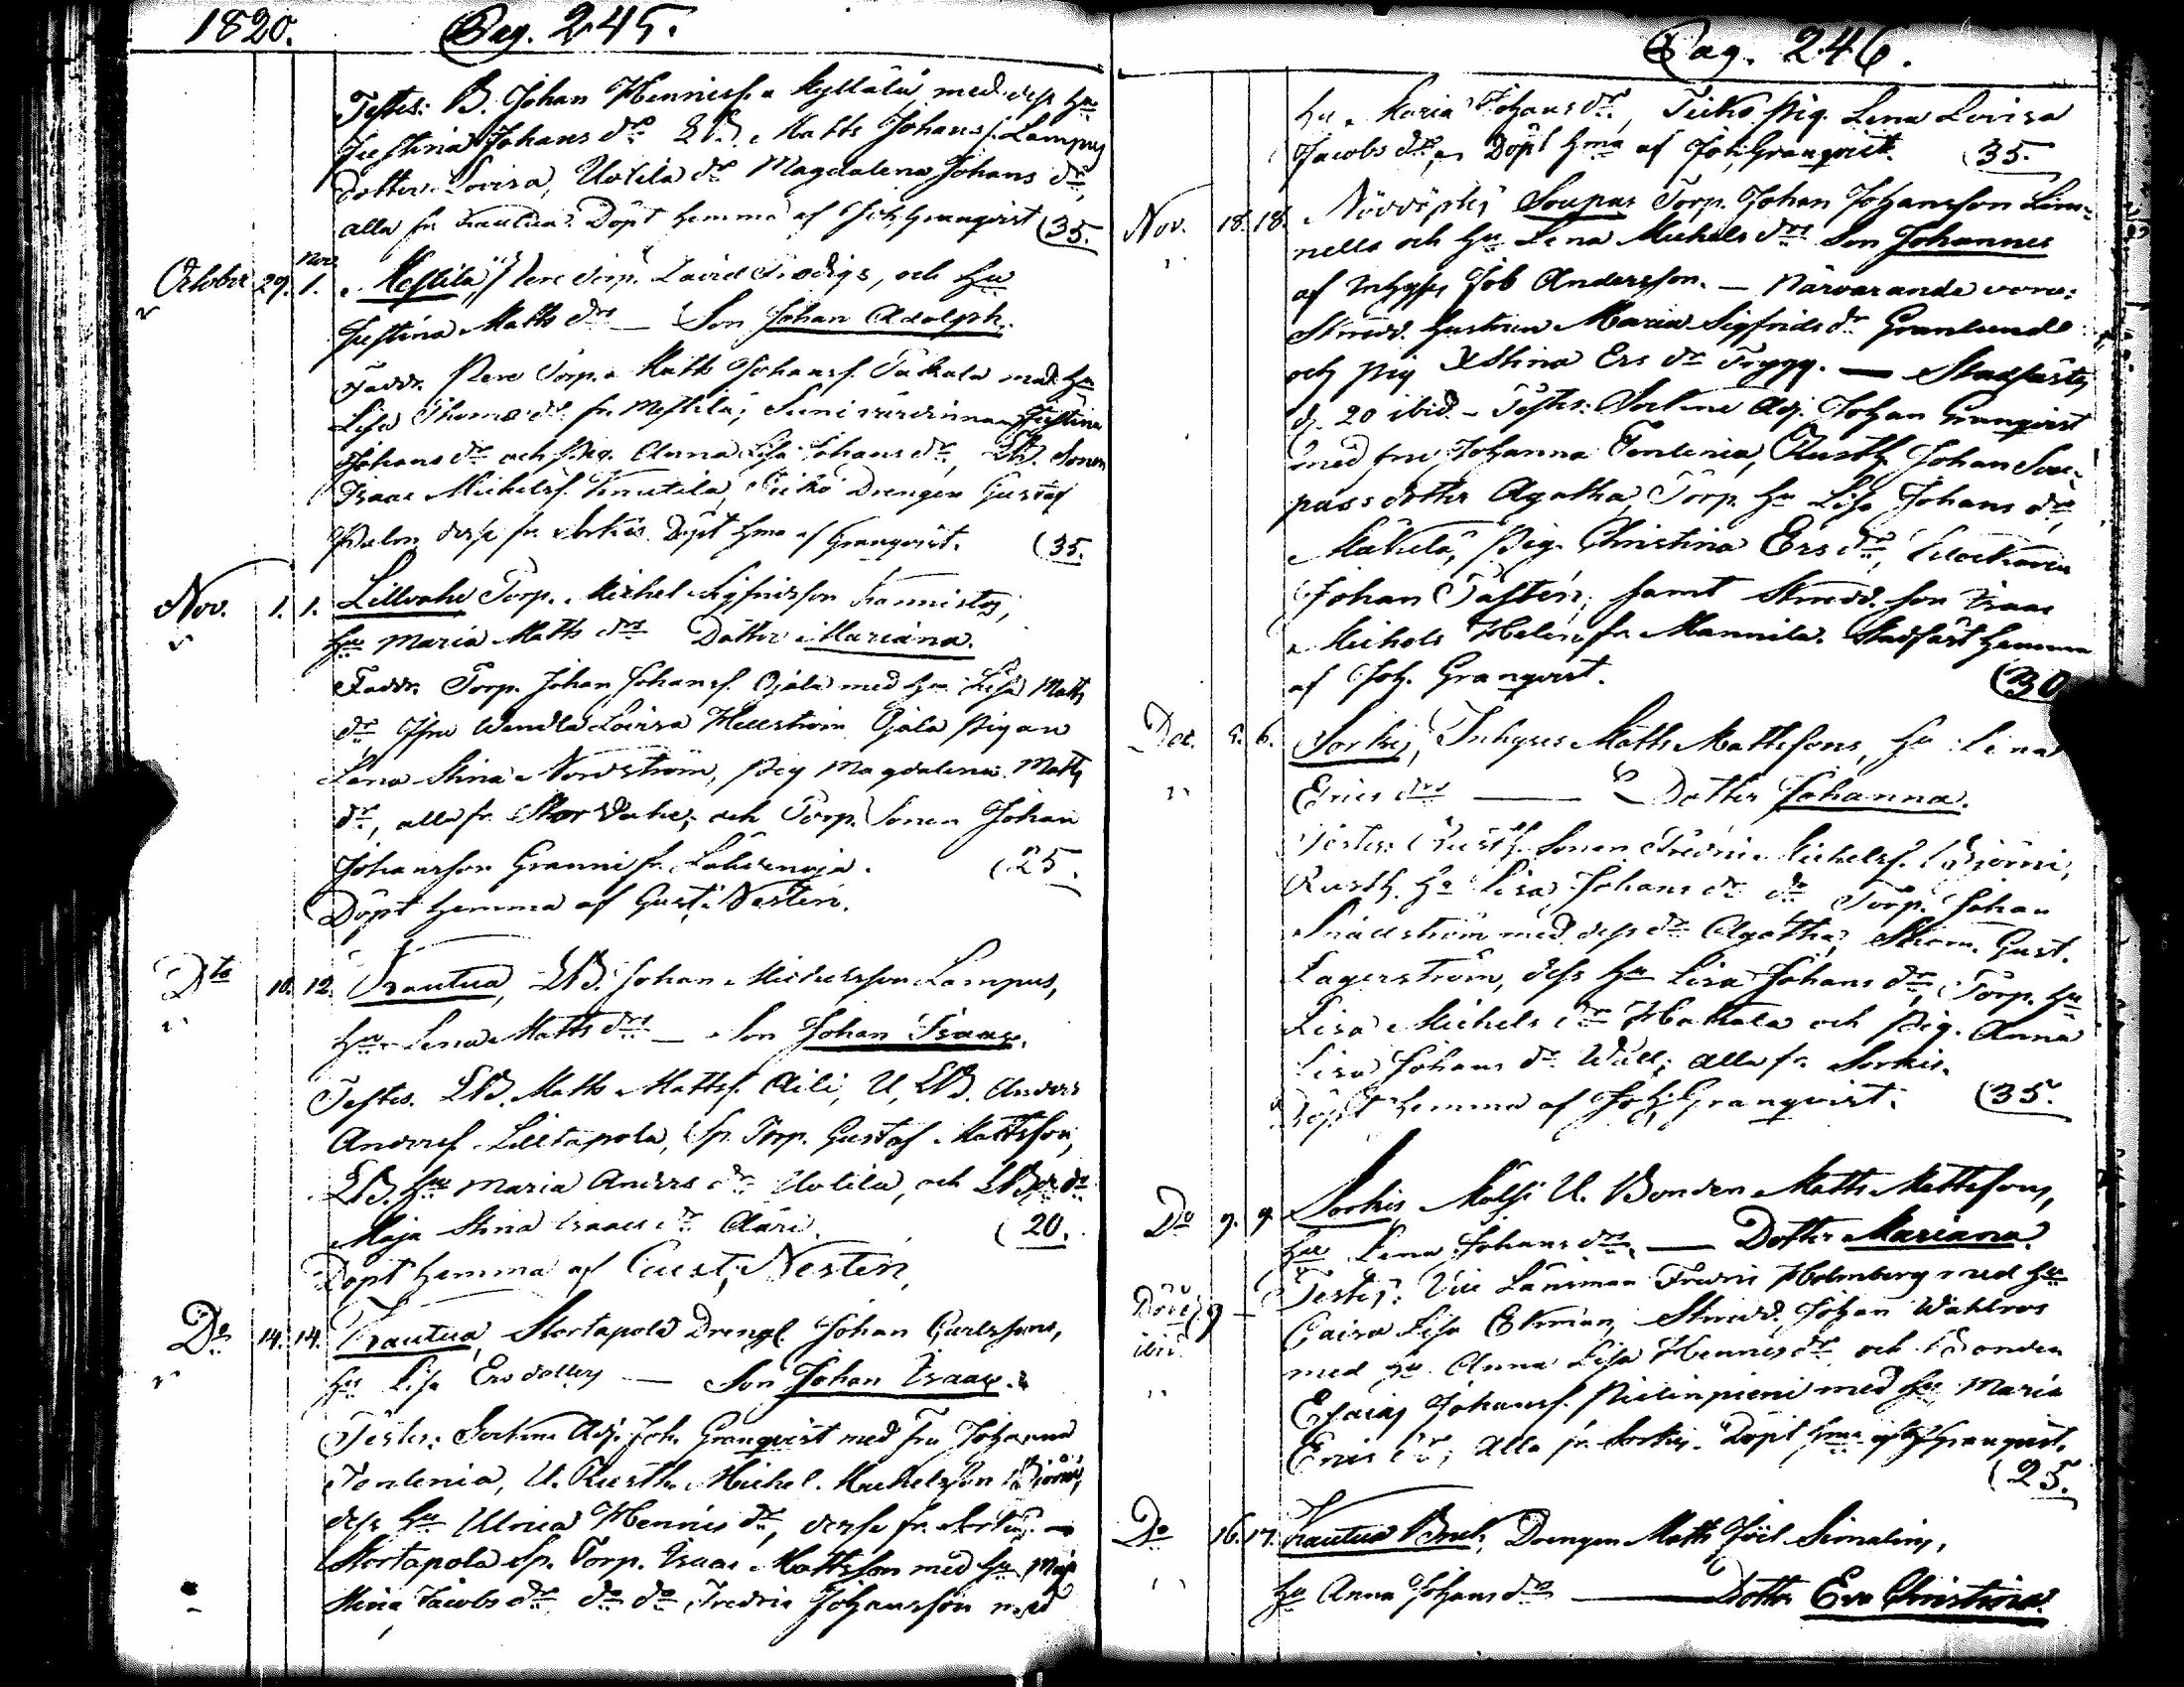 1820. Pag. 245.
Testes: B. Johan Hennicss. Kyllälä med dess hu
Justina Johans dr LB. Matts Johanss. Lampus
dotter Lovisa, Uotila dr Magdalena Johans dr,
alla fr. Kauttua. Döpt hemma af Joh. Granqvist (35.
October 29. Nov. 1. Mestilä, torp. David
Justina Matts drs — Son Johan Adolph.
Fadd. Torp. Matts Johanss. Takala med hu
Lisa Thomas dr fr. Mestilä; värdinnan Justina
Johans dr och Pig. Anna Lisa Johans dr, LB. Sonen
Isaac Michelss. Knutila, Drengen Gustaf
Palm, desse fr. Sorkis. Döpt hma af Granqvist. (35.
Nov. 1. 1. Lillvahe Torp. Michel Sigfridsson Kannistos,
hu Maria Matts drs Dotter Mariana.
Faddr. Torp. Johan Johanss. Ojala med hu Lisa Matts
dr Jfru Wendla Lovisa Hellström, Ojala Pigan
Lena Stina Nordström, Pig Magdalena Matts
dr, alla fr. Stor Vahe; och Torp. Sonen Johan
Johansson Granni fr. Lähdenoja. (25.
Döpt hemma af Gust. Nestén.
Dto 10. 12. Kauttua, LB. Johan Michelsson Lampus,
hu Lena Matts drs — Son Johan Isaac.
Testes. LB. Matts Mattss. Aili, U, LB. Anders
Anderss. Lilltapola, Sp. Torp. Gustaf Mattsson,
LB. hu Maria Anders dr Uotila, och LB. dr
Maja Stina Isaacs dr Ääri. (20.
Döpt hemma af Gust. Nestén.
Do 14. 14. Kauttua, Stortapola Dreng. Johan Carlssons,
hu Lisa Ersdotters — Son Johan Isaac.
Testes: Sockne Adj. Joh. Granqvist med Fru Johanna
Tenlenia, U. Rusth. Michel Michelsson Björni,
dess hu Ulrica Hennics dr, desse fr. Sorkis
Stortapola Sp. Torp. Isaac Mattsson med hu Maja
Stina Jacobs dr, do do Fredric Johansson med
Pag. 246.
hu Maria Johans dr, Pig. Lena Lovisa
Jacobs dr, Döpt hma af Joh. Granqvist. (35.
Nov. 18. 18. Soupas Torp. Johan Johansson Lin-
nells och hu Lena Michels drs Son Johannes
af Inhyses Job Andersson. — Närvarande voro:
Smed. hustrun Maria Sigfrids dr Granlund
och Pig Stina Ers dr Trygg. — Stadfästes
d. 20 ibid. — Testes: Sockne Adj. Johan Granqvist
med fru Johanna Tenlenia, Rusth. Johan Sou-
pas dotter Agatha, Torp. hu Lisa Johans dr
Mäkelä, Pig. Christina Ers dr, Klockaren
Johan Tastén, samt Smed. son Isaac
Michels Helin fr. Mannila. Stadfäst hemma
af Joh. Granqvist. (30
Dec. 5. 6. Sorkis, Inhyses Matts Mattssons, hu Lena
Erics drs — Dotter Johanna.
Testes: Rusth. Sonen Fredric Michelss. Björni,
Rusth. hu Lisa Johans dr do Torp. Johan
Snällström med dess dr Agatha, Gust.
Lagerström, dess hu Lisa Johans dr, Torp. hu
Lisa Michels dr Hakala och Pig. Anna
Lisa Johans dr Wall; alla fr. Sorkis.
Döpt hemma af Joh. Granqvist. (35.
Do 9. 9. Sorkis U. Bonden Matts Mattssons,
hu Lena Johans drs — Dotter Mariana.
Testes: Vice Länsman Fredric Holmberg med hu
Caisa Lisa Ekman, Smed. Johan Wahlros
med hu Anna Lisa Hennics dr och Bonden
Esaias Johanss. Pielinpieni med hu Maria
Erics dr; alla fr. Sorkis. Döpt hma af Joh. Granqvist.
(25.
Do 16. 17. Kauttua Bruk, Drengen Matts Joël Simelins,
hu Anna Johans drs — Dotter Eva Christina.